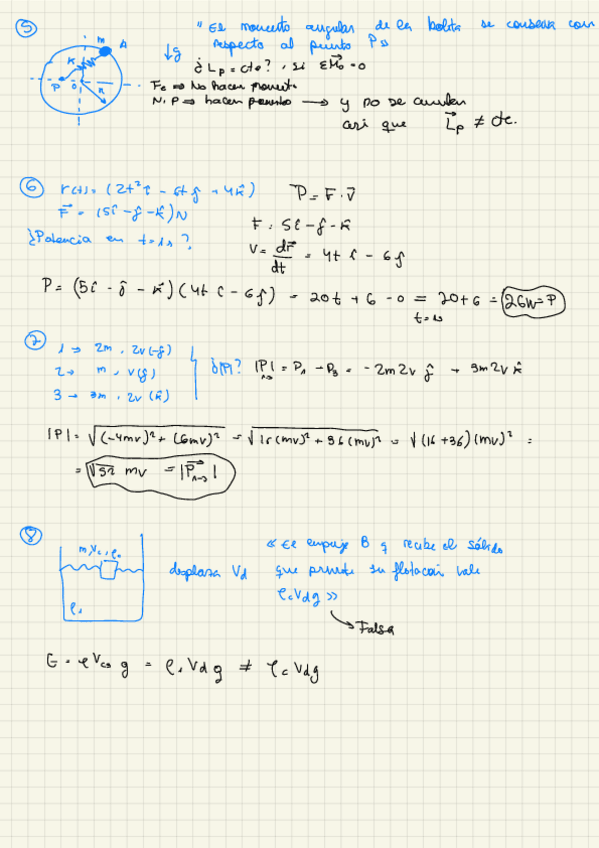 5
m A
P O R
↓g
"El momento angular de la bolita se conserva con
respecto al punto P"
¿ Lp = cte? , si ΣM̄o = 0
Fe ⇒ No hacen momento
N, P ⇒ hacen momento → y no se anulan
así que L⃗p ≠ cte.
6
r(t) = (2t² î - 6t ĵ + 4 k̂)
F⃗ = (5î - ĵ - k̂) N
¿Potencia en t = 1s?
P = F⃗ · V⃗
F = 5î - ĵ - k̂
V = dr⃗/dt = 4t î - 6ĵ
P = (5î - ĵ - k̂)(4t î - 6ĵ) = 20t + 6 - 0 = 20 + 6 = 26W = P
t = 1s
7
1 → 2m , 2v(-ĵ)
2 → m , v(ĵ)
3 → 3m , 2v(k̂)
¿|P|? |P| = P₁ - P₃ = -2m2v ĵ + 3m2v k̂
1→3
|P| = √(-4mv)² + (6mv)² = √16(mv)² + 36(mv)² = √(16+36)(mv)² =
= √52 mv = |P⃗₁→₃|
8
m, Vc, ρc
ρ₁
desplaza Vd
"El empuje B q recibe el sólido
que permite su flotación vale
ρc Vd g"
→ Falsa
E = ρ Vcs g = ρ₁ Vd g ≠ ρc Vd g